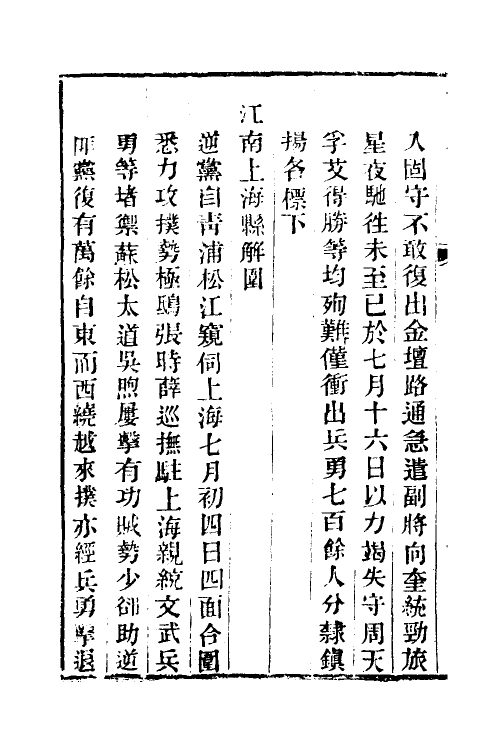 人固守不敢復出金壇路通急遣副將向奎統勁旅
星夜馳徃未至已於七月十六日以力竭失守周天
孚艾得勝等均殉難僅衝出兵勇七百餘人分隸鎮
揚各標下
江南上海縣解圍
逆黨自靑浦松江窺伺上海七月初四日四面合圍
悉力攻撲勢極鴟張時薛巡撫駐上海親統文武兵
勇等堵禦蘇松太道吳煦屢擊有功賊勢少卻助逆
匪黨復有萬餘自東而西繞越來撲亦經兵勇擊退